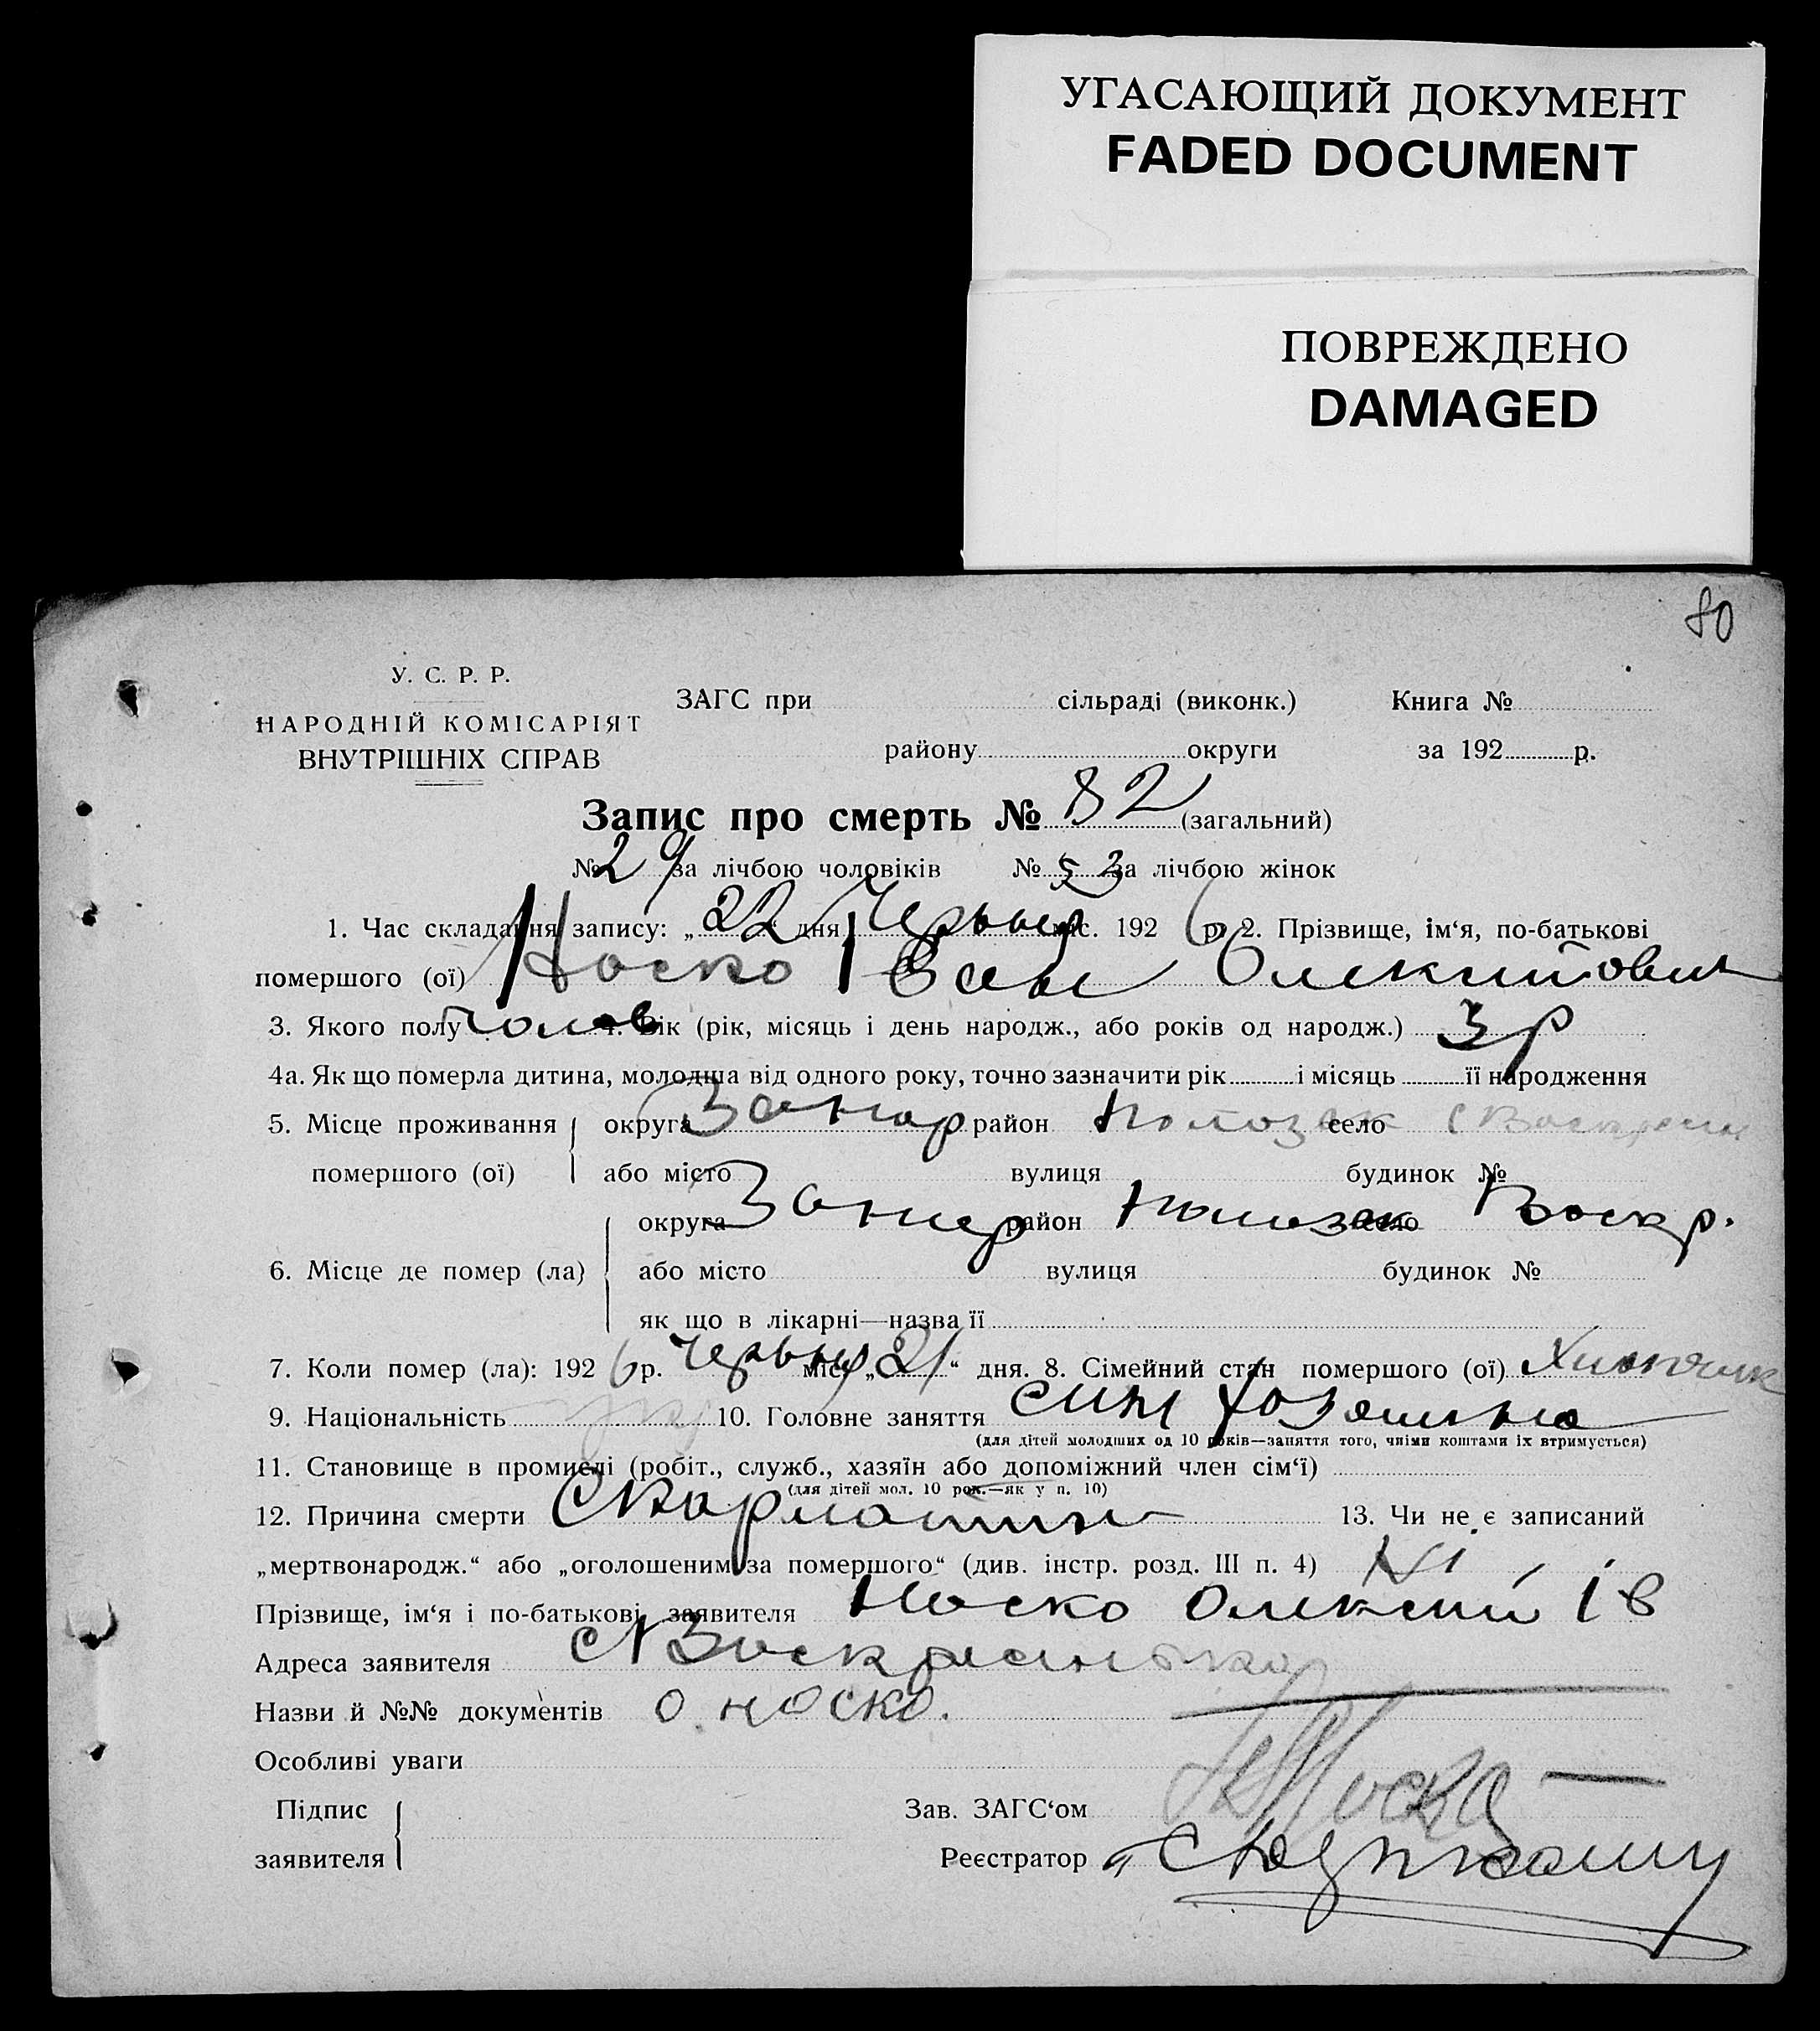 УГАСАЮЩИЙ ДОКУМЕНТ
FADED DOCUMENT
ПОВРЕЖДЕНО
DAMAGED
80
У. С. Р. Р.
НАРОДНІЙ КОМІСАРІЯТ
ВНУТРІШНІХ СПРАВ
ЗАГС при сільраді (виконк.) Книга №
району округи за 192 р.
Запис про смерть № 82 (загальний)
№ 29 за лічбою чоловіків № 53 за лічбою жінок
1. Час складання запису: „22" дня Червня міс. 1926 р. 2. Прізвище, ім‘я, по-батькові
помершого (ої) Носко Іван
3. Якого полу чолов 4. Вік (рік, місяць і день народж., або років од народж.) 3 р
4а. Як що померла дитина, молодша від одного року, точно зазначити рік і місяць її народження
5. Місце проживання помершого (ої) округа Запор район Пологівськ село
або місто вулиця будинок №
6. Місце де помер (ла) округа Запор район село Воскр.
або місто вулиця будинок №
як що в лікарні—назва її
7. Коли помер (ла): 1926 р. Червня міс. „21“ дня. 8. Сімейний стан помершого (ої) Хлопчик
9. Національність укр 10. Головне заняття син
(для дітей молодших од 10 років—заняття того, чиїми коштами їх втримується)
11. Становище в промислі (робіт., служб., хазяїн або допоміжний член сім‘ї)
(для дітей мол. 10 рок.—як у п. 10)
12. Причина смерти Скарлатина 13. Чи не є записаний
„мертвонародж.“ або „оголошеним за помершого“ (див. інстр. розд. III п. 4) Ні
Прізвище, ім‘я і по-батькові заявителя Носко Олексій Ів
Адреса заявителя
Назви й №№ документів О. Носко.
Особливі уваги
Підпис заявителя
Зав. ЗАГС‘ом
Реєстратор